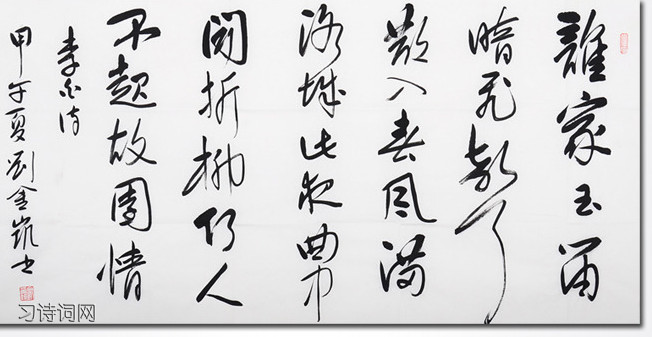 誰家玉笛
暗飛聲
散入春风满
洛城此夜曲中
闻折柳何人
不起故園情
李白诗
甲午夏劉金凱书
习诗词网